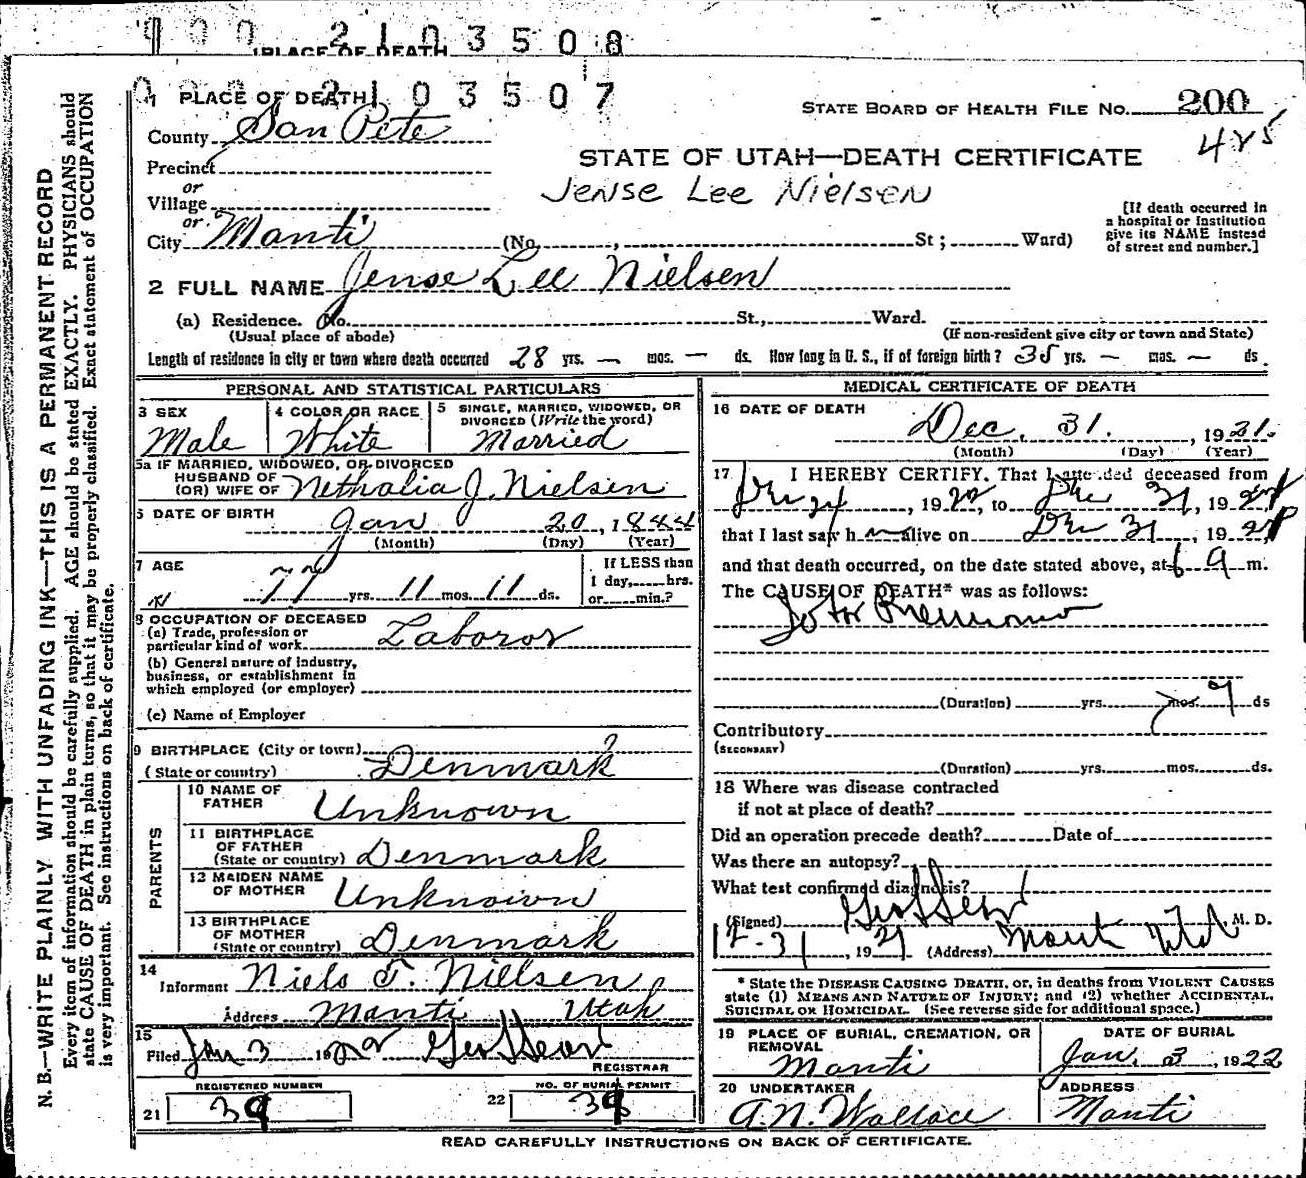 000 2103508
PLACE OF DEATH
000 2103507
1 PLACE OF DEATH
STATE BOARD OF HEALTH FILE NO. 200
County San Pete
485
STATE OF UTAH—DEATH CERTIFICATE
Precinct
or
Village
Jense Lee Nielsen
or
City Manti (No. , St; Ward)
[If death occurred in a hospital or institution give its NAME instead of street and number.]
2 FULL NAME Jense Lee Nielsen
(a) Residence. No. St., Ward.
(Usual place of abode) (If non-resident give city or town and State)
Length of residence in city or town where death occurred 28 yrs. — mos. — ds. How long in U. S., if of foreign birth? 35 yrs. — mos. — ds.
PERSONAL AND STATISTICAL PARTICULARS
3 SEX
Male
4 COLOR OR RACE
White
5 SINGLE, MARRIED, WIDOWED, OR DIVORCED (Write the word)
Married
5a IF MARRIED, WIDOWED, OR DIVORCED
HUSBAND OF
(OR) WIFE OF Nethalia J. Nielsen
6 DATE OF BIRTH Jan 20, 1844
(Month) (Day) (Year)
7 AGE
77 yrs. 11 mos. 11 ds.
If LESS than
1 day, hrs.
or min.?
8 OCCUPATION OF DECEASED
(a) Trade, profession or
particular kind of work Laboror
(b) General nature of industry,
business, or establishment in
which employed (or employer)
(c) Name of Employer
9 BIRTHPLACE (City or town) ?
(State or country) Denmark
PARENTS
10 NAME OF
FATHER Unknown
11 BIRTHPLACE
OF FATHER
(State or country) Denmark
12 MAIDEN NAME
OF MOTHER Unknown
13 BIRTHPLACE
OF MOTHER
(State or country) Denmark
14
Informant Niels T. Nillsen
Address Manti Utah
15
Filed Jan 3 19
REGISTRAR
REGISTERED NUMBER
21 39
NO. OF BURIAL PERMIT
22 39
MEDICAL CERTIFICATE OF DEATH
16 DATE OF DEATH
Dec. 31. , 1921.
(Month) (Day) (Year)
17 I HEREBY CERTIFY, That I attended deceased from
, 19 , to Dec 31, 19
that I last saw h alive on Dec 31, 19
and that death occurred, on the date stated above, at 6 a m.
The CAUSE OF DEATH* was as follows:
(Duration) yrs. mos. 9 ds
Contributory
(SECONDARY)
(Duration) yrs. mos. ds.
18 Where was disease contracted
if not at place of death?
Did an operation precede death? Date of
Was there an autopsy?
What test confirmed diagnosis?
(Signed) M. D.
12-31, 1921 (Address) Manti Utah
* State the DISEASE CAUSING DEATH, or, in deaths from VIOLENT CAUSES
state (1) MEANS AND NATURE OF INJURY; and (2) whether ACCIDENTAL,
SUICIDAL OR HOMICIDAL. (See reverse side for additional space.)
19 PLACE OF BURIAL, CREMATION, OR
REMOVAL
Manti
DATE OF BURIAL
Jan. 3, 1922
20 UNDERTAKER
A.N. Wallace
ADDRESS
Manti
READ CAREFULLY INSTRUCTIONS ON BACK OF CERTIFICATE.
N. B.—WRITE PLAINLY WITH UNFADING INK—THIS IS A PERMANENT RECORD
Every item of information should be carefully supplied. AGE should be stated EXACTLY. PHYSICIANS should
state CAUSE OF DEATH in plain terms, so that it may be properly classified. Exact statement of OCCUPATION
is very important. See instructions on back of certificate.